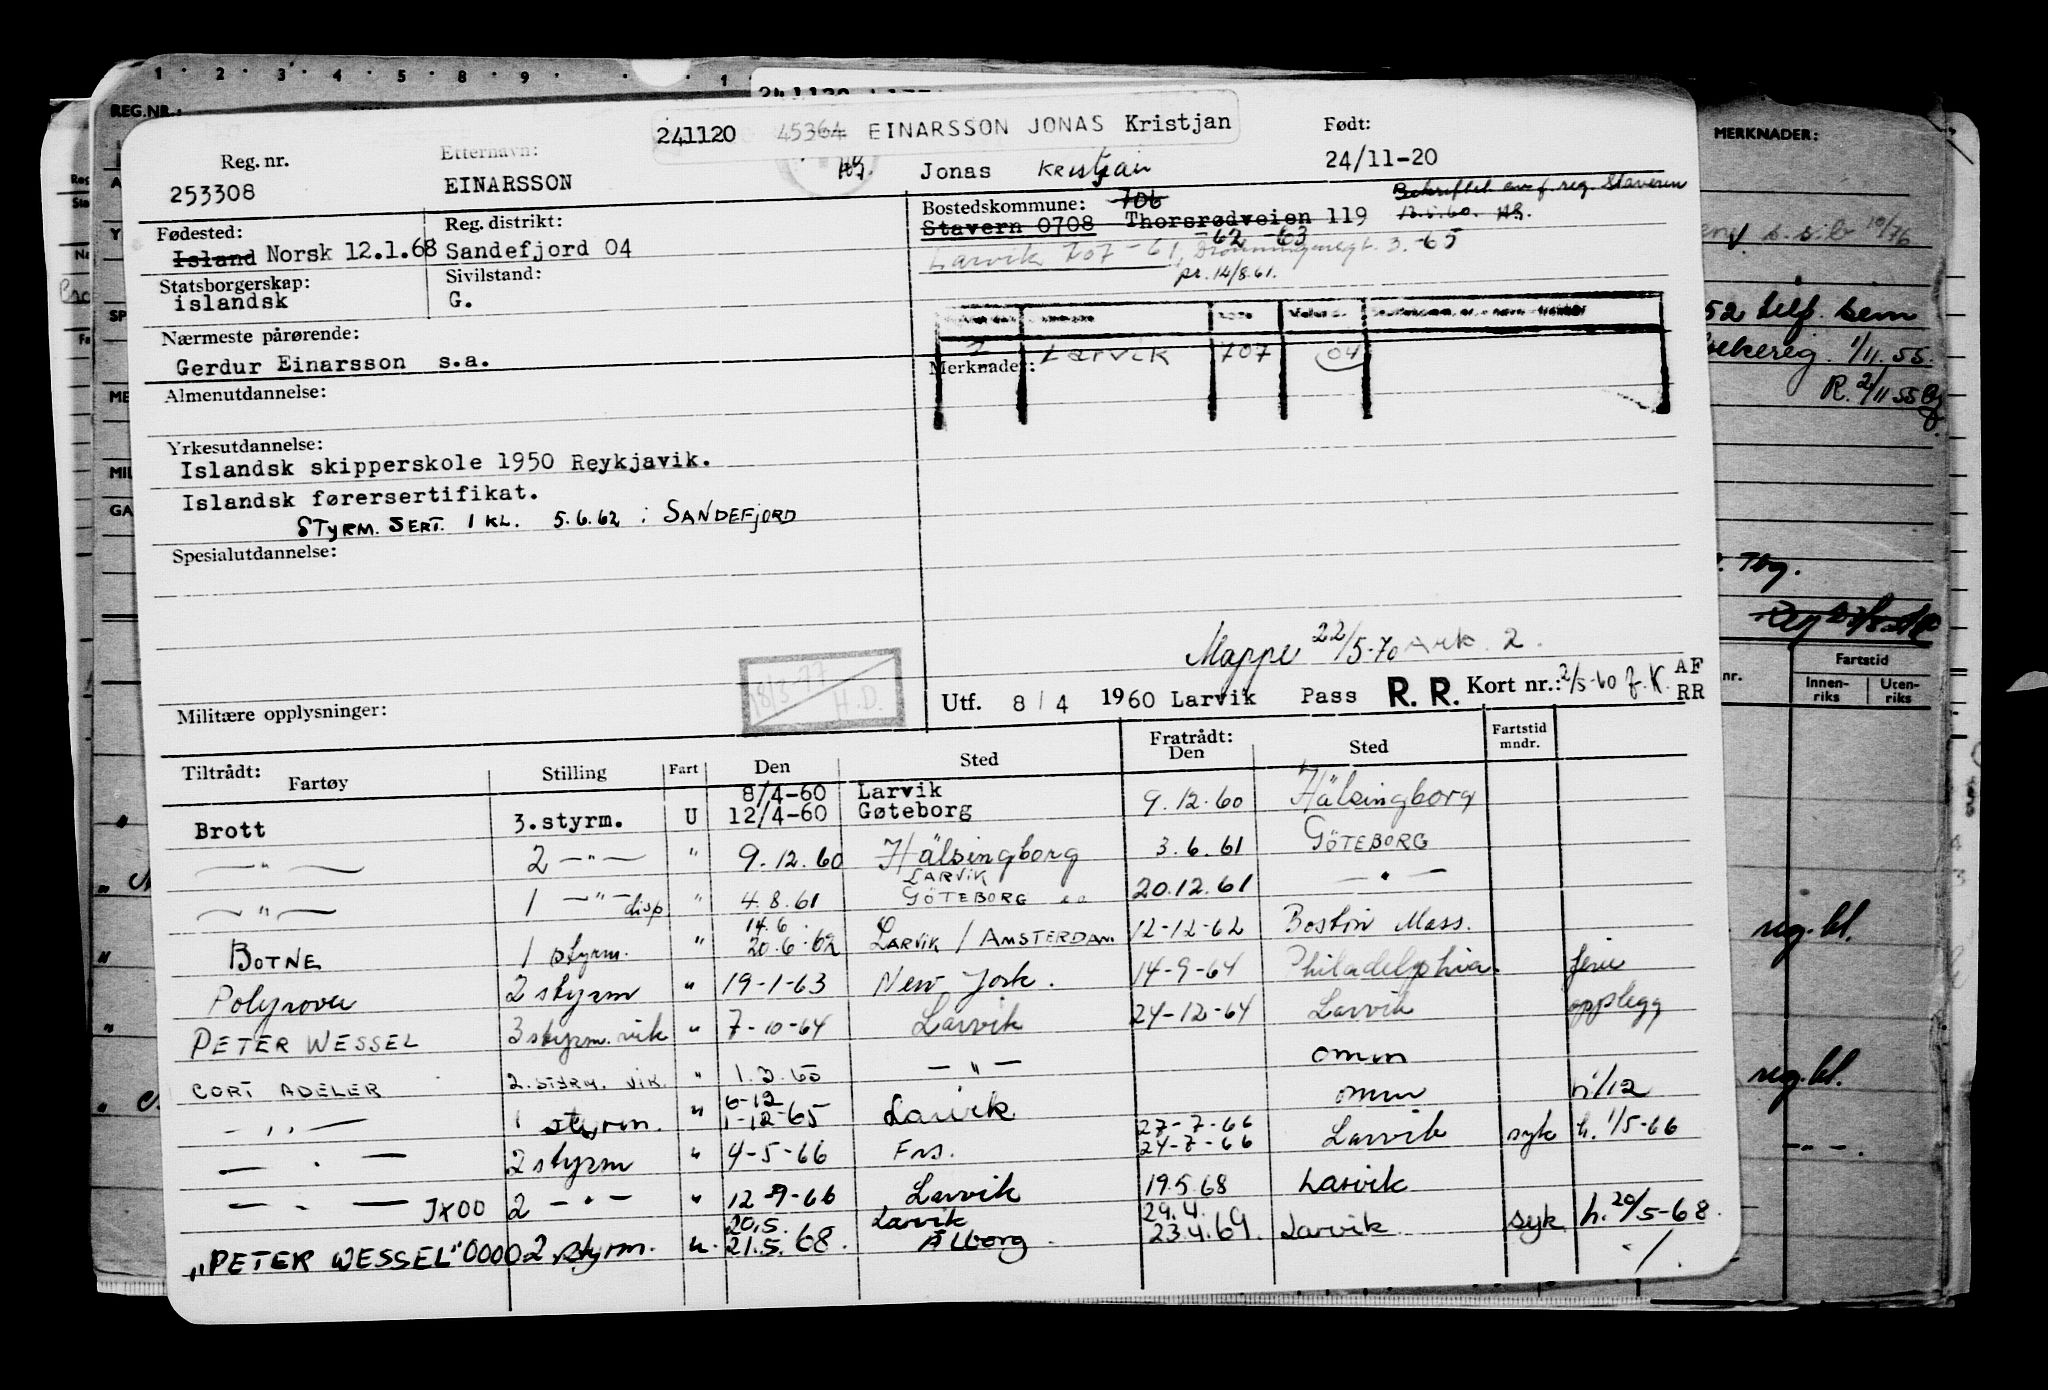 1 2 3 4 5 8 9 1
REG.NR.:
241120 45364 EINARSSON JONAS Kristjan
Reg. nr.
253308
Etternavn:
EINARSSON
Jonas Kristjan
Født:
24/11-20
Fødested:
Island Norsk 12.1.68
Reg. distrikt:
Sandefjord 04
Bostedskommune: 706
Stavern 0708 Thorsrødveien 119
Bekreftet av f.reg. Stavern
13.5.60.
62 63
Larvik 707 - 61, Dronningensgt. 3. -65
pr. 14/8.61.
Statsborgerskap:
islandsk
Sivilstand:
G.
Nærmeste pårørende:
Gerdur Einarsson s.a.
Larvik 707 04
Merknader:
Almenutdannelse:
Yrkesutdannelse:
Islandsk skipperskole 1950 Reykjavik.
Islandsk førersertifikat.
STYRM. SERT. 1 KL. 5.6.62 i SANDEFJORD
Spesialutdannelse:
Mappe 22/5-70 Ark. 2.
18/3-77
H.D.
Militære opplysninger:
Utf. 8/4 1960 Larvik Pass R. R. Kort nr.: 2/5-60 f.K. AF
RR
Tiltrådt:
Fartøy Stilling Fart Den Sted Fratrådt:
Den Sted Fartstid
mndr.
8/4-60 Larvik
Brott 3.styrm. U 12/4-60 Gøteborg 9.12.60 Hälsingborg
—"— 2 —"— " 9.12.60 Hälsingborg 3.6.61 GÖTEBORG
LARVIK
—"— 1 —"— disp " 4.8.61 GÖTEBORG 20.12.61 —"—
14.6.
BOTNE 1 styrm. " 20.6.62 LARVIK / AMSTERDAM 12-12-62 Boston Mass.
Polyrover 2 styrm " 19-1-63 New York. 14-9-64 Philadelphia. ferie
PETER WESSEL 3 styrm. vik " 7-10-64 Larvik 24-12-64 Larvik opplegg
CORT ADELER 2. STYRM. VIK. " 1.3.65 —"— omm
6-12
—"— 1 styrm. " 1-12-65 Larvik omm n'/12
27-7-66
—"— 2 styrm " 4-5-66 Frs. 24-7-66 Larvik syk h. 1/5-66
—"— JX00 2 —"— " 12-9-66 Larvik 19.5.68 Larvik
20.5. Larvik 29.4.
„PETER WESSEL" 0000 2 styrm. u. 21.5.68. Ålborg. 23.4.69. Larvik. syk h. 20/5-68.
MERKNADER:
19/76
52 self. sem
1/11.55.
R. 2/11 55
Tbg.
nr.
Fartstid
Innen-
riks
Uten-
riks
reg.bl.
reg.bl.
—"—